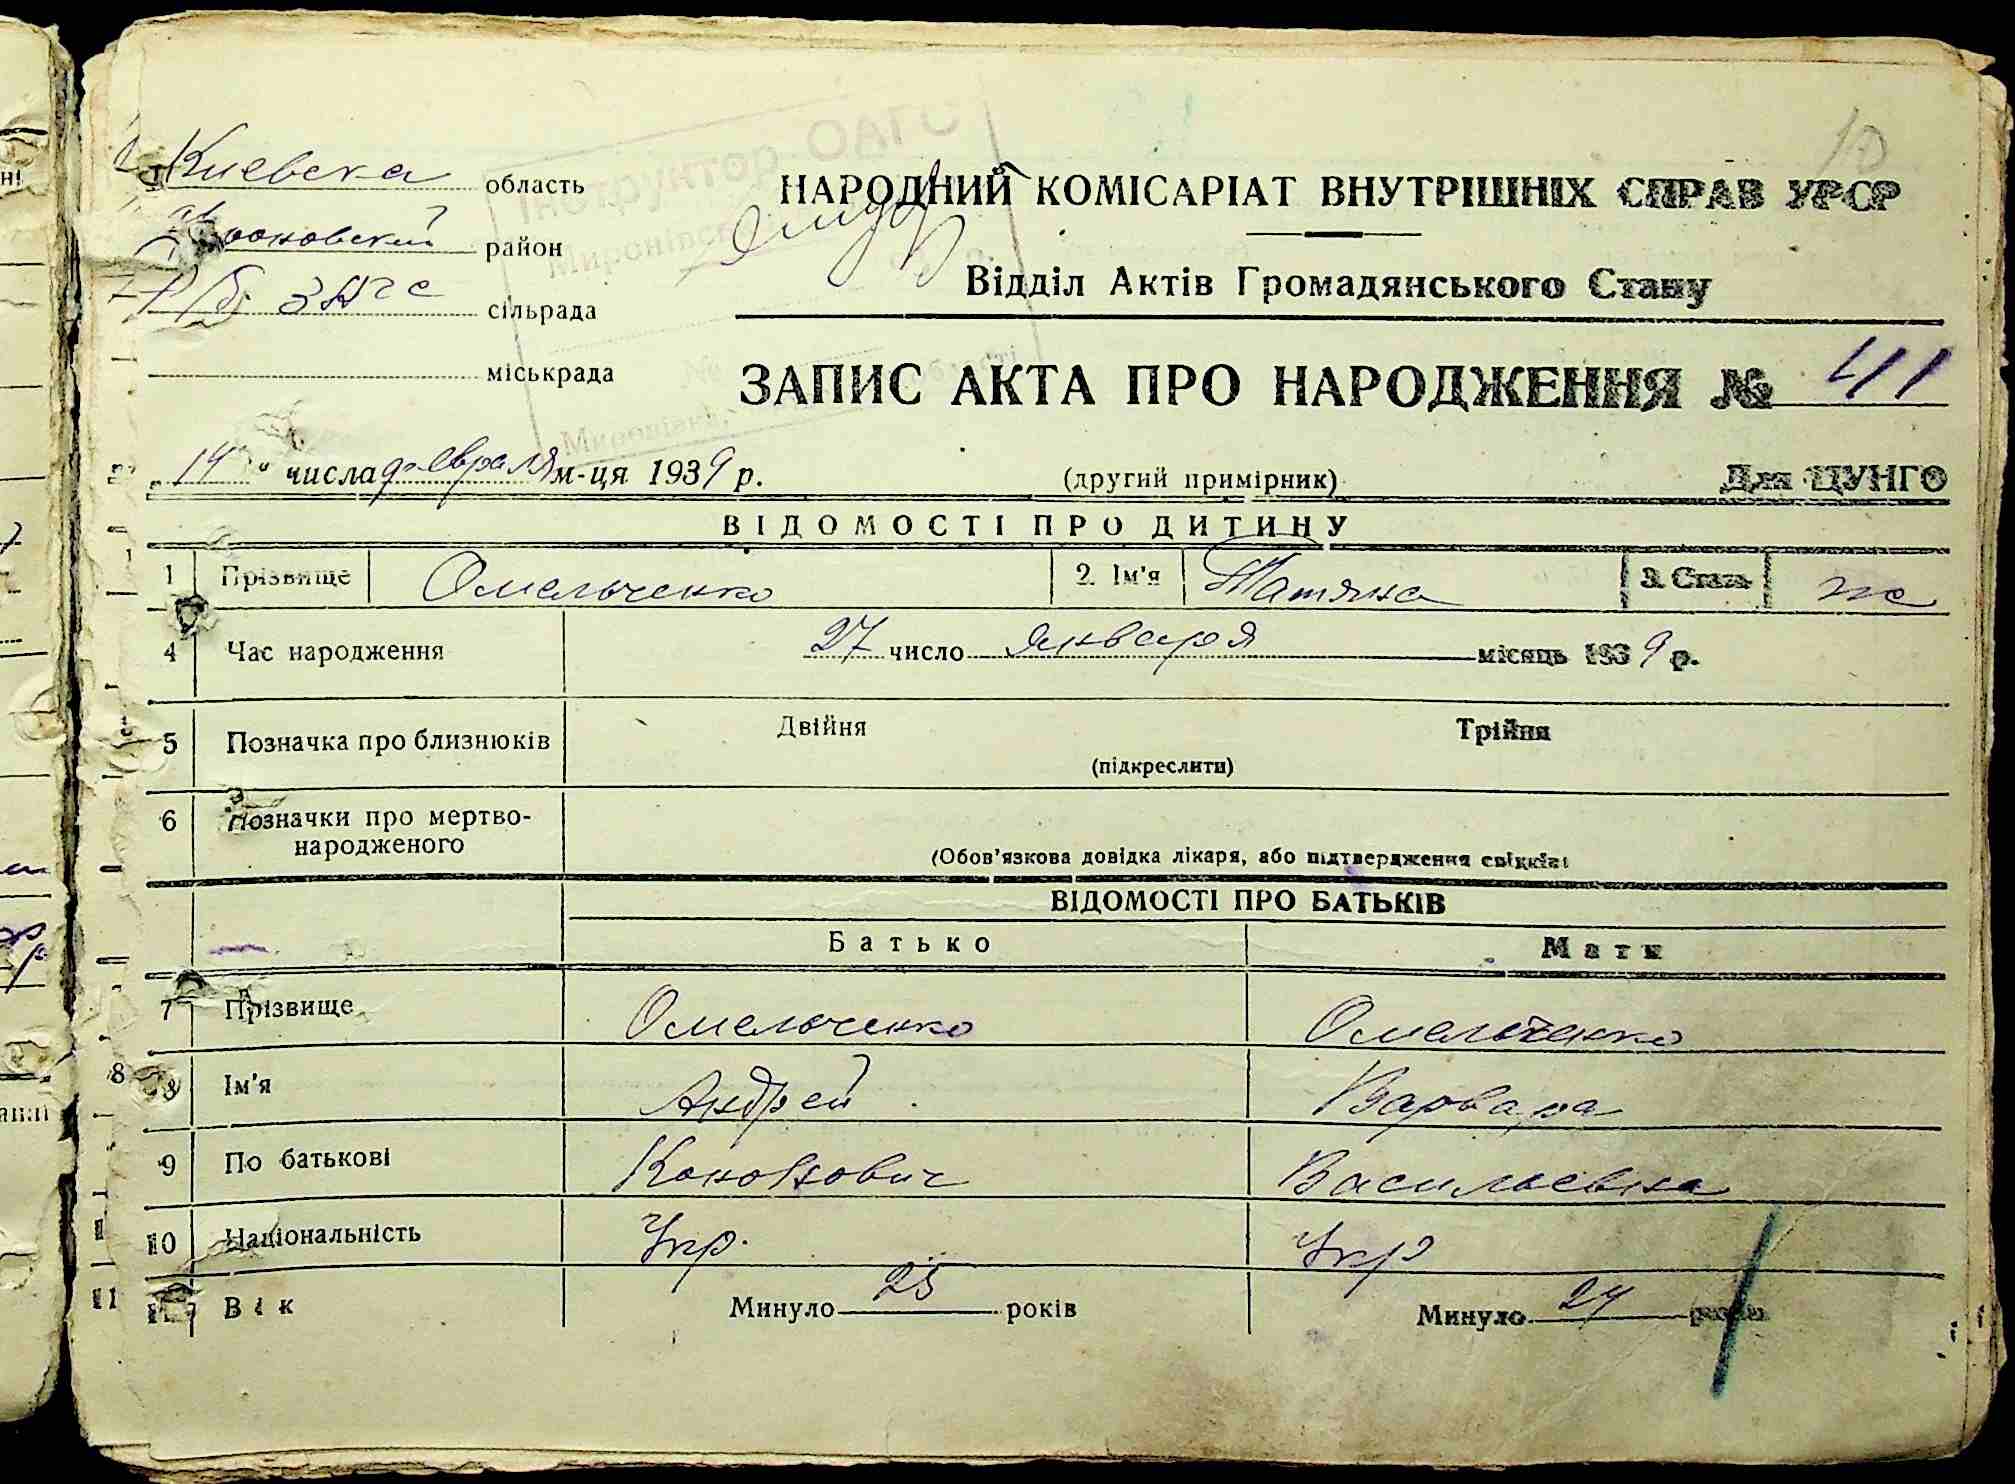 10
Інструктор ОАГС
Киевска область
НАРОДНИЙ КОМІСАРІАТ ВНУТРІШНІХ СПРАВ УРСР
район
Відділ Актів Громадянського Стану
ЗАГС сільрада
міськрада
ЗАПИС АКТА ПРО НАРОДЖЕННЯ № 411
14 числа февраля м-ця 1939 р.
(другий примірник)
Для ЦУНГО
ВІДОМОСТІ ПРО ДИТИНУ
1 Прізвище Омельченко 2. Ім'я Татяна 3. Стать ж
4 Час народження 27 число января місяць 1939 р.
5 Позначка про близнюків Двійня Трійня
(підкреслити)
6 Позначки про мертво-
народженого
(Обов'язкова довідка лікаря, або підтвердження свідків)
ВІДОМОСТІ ПРО БАТЬКІВ
Батько Мати
7 Прізвище Омельченко Омельченко
8 Ім'я Андрей Варвара
9 По батькові Кононович Васильевна
10 Національність Укр. Укр
11 Вік Минуло 25 років Минуло 24 років